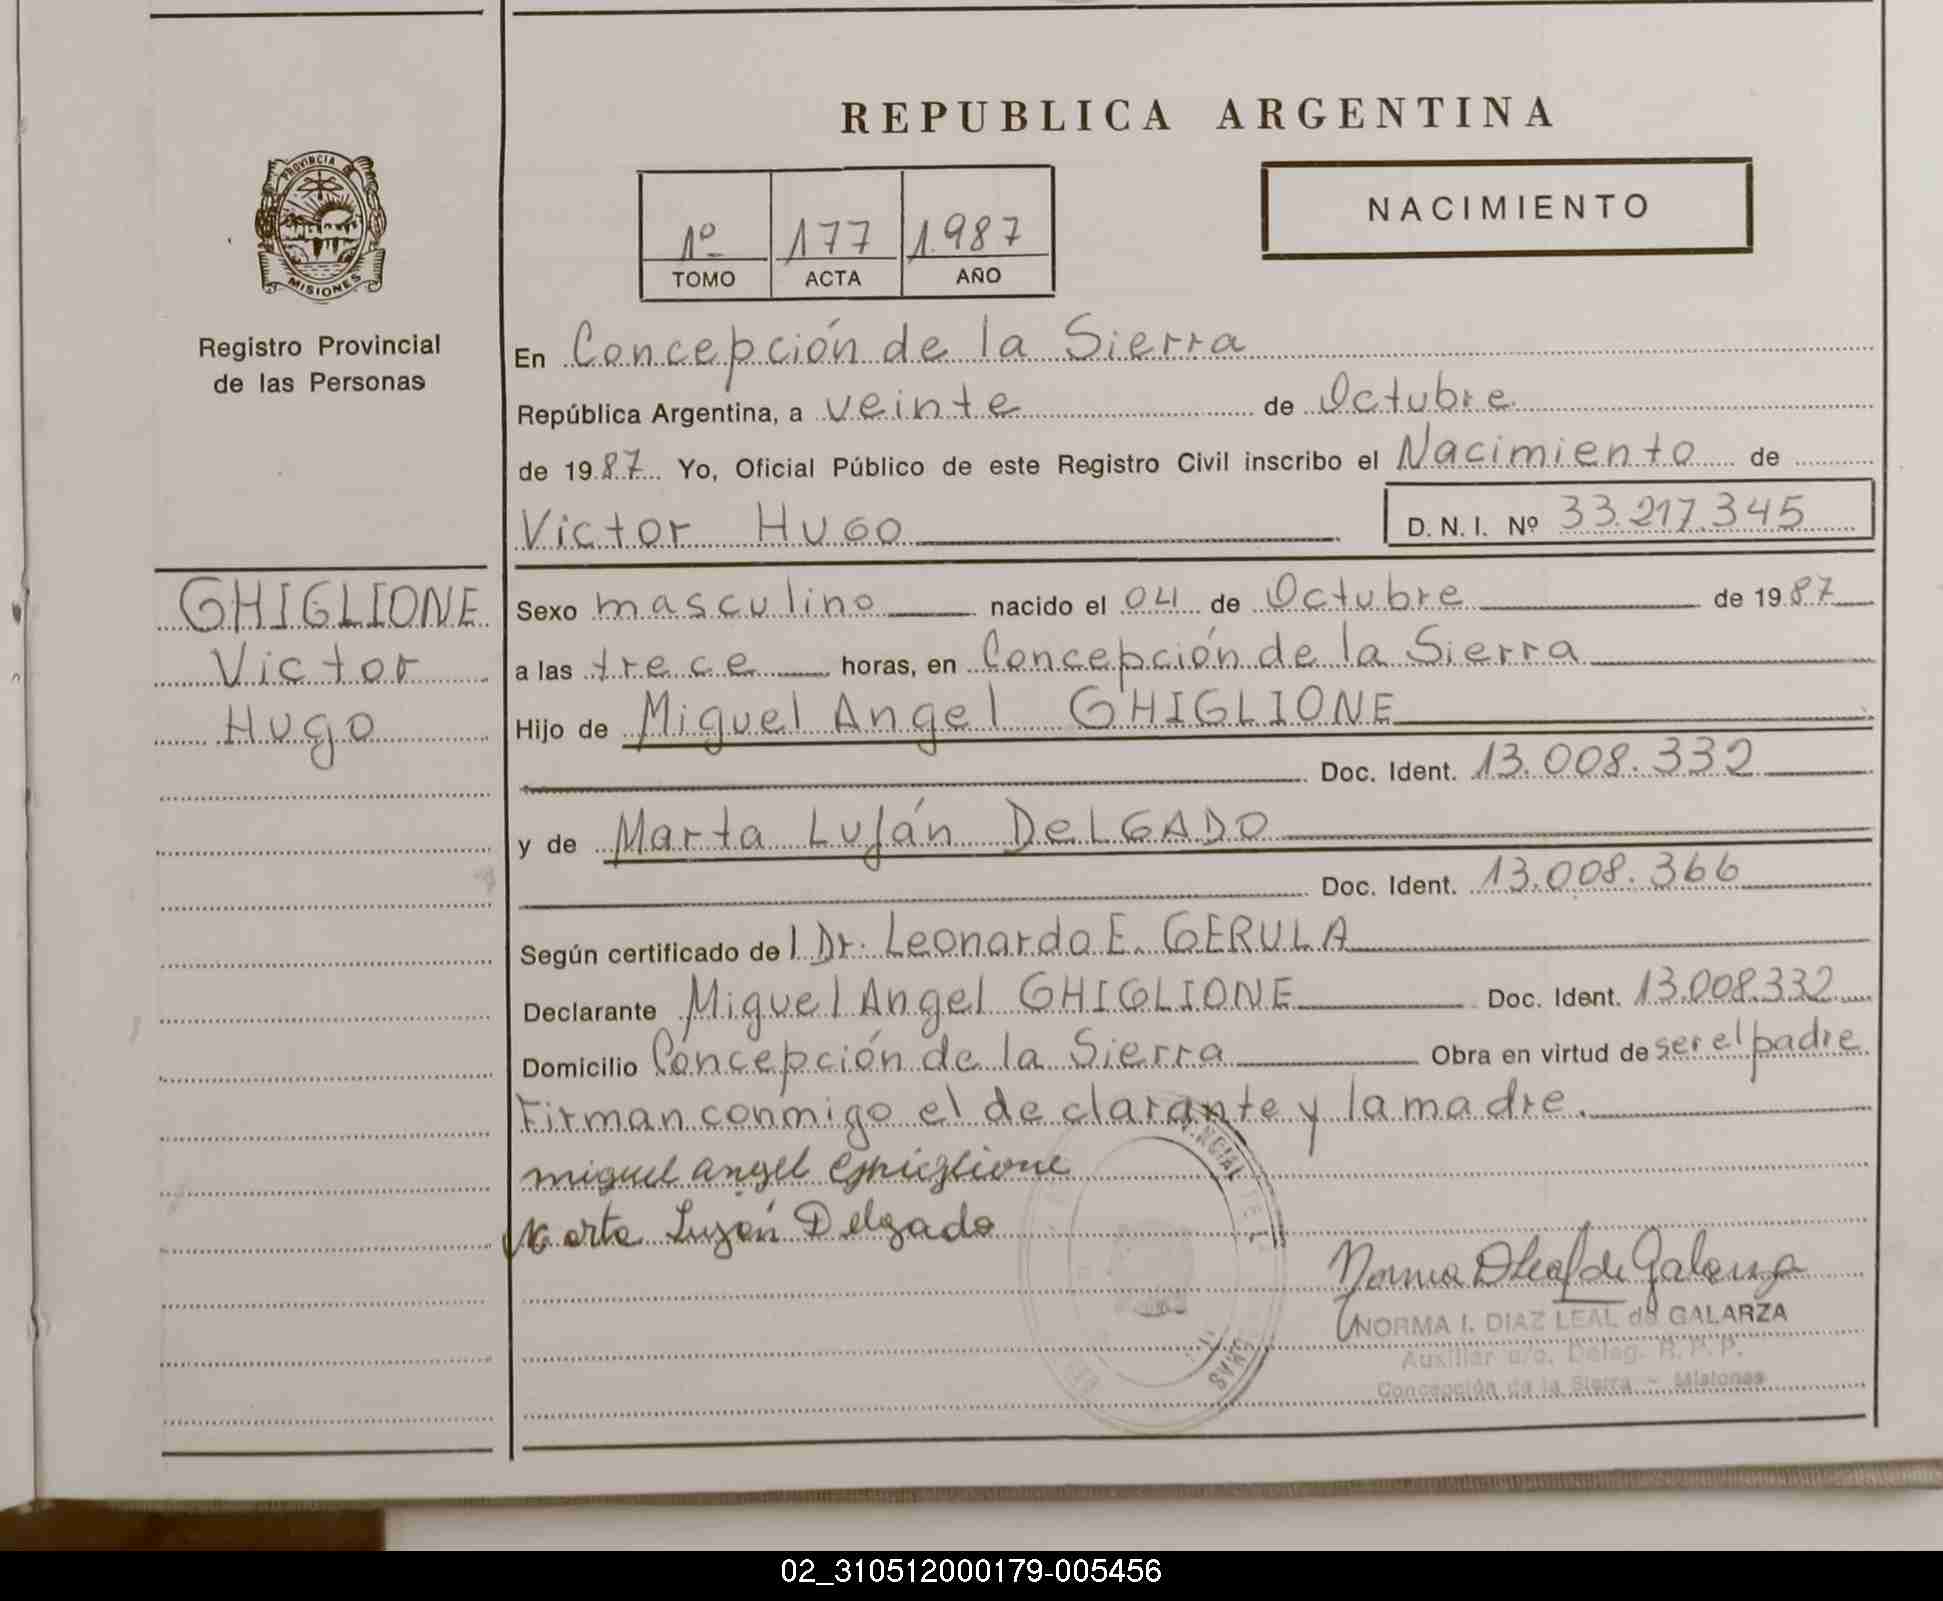 REPUBLICA ARGENTINA
PROVINCIA
MISIONES
Registro Provincial
de las Personas
1º 177 1.987
TOMO ACTA AÑO
NACIMIENTO
En Concepción de la Sierra
República Argentina, a veinte de Octubre
de 1987 Yo, Oficial Público de este Registro Civil inscribo el Nacimiento de
Victor HUGO D. N. I. Nº 33.217.345
GHIGLIONE
Victor
Hugo
Sexo masculino nacido el 04 de Octubre de 1987
a las trece horas, en Concepción de la Sierra
Hijo de Miguel Angel GHIGLIONE
Doc. Ident. 13.008.332
y de Marta Luján DELGADO
Doc. Ident. 13.008.366
Según certificado de Dr. Leonardo E. GERULA
Declarante Miguel Angel GHIGLIONE Doc. Ident. 13.008.332
Domicilio Concepción de la Sierra Obra en virtud de ser el padre
Firman conmigo el declarante y la madre.
miguel angel Ghiglione
Marta Luján Delgado
Norma D Leal de Galarza
NORMA I. DIAZ LEAL de GALARZA
Auxiliar a/c. Deleg. R. P. P.
Concepción de la Sierra - Misiones
02_310512000179-005456